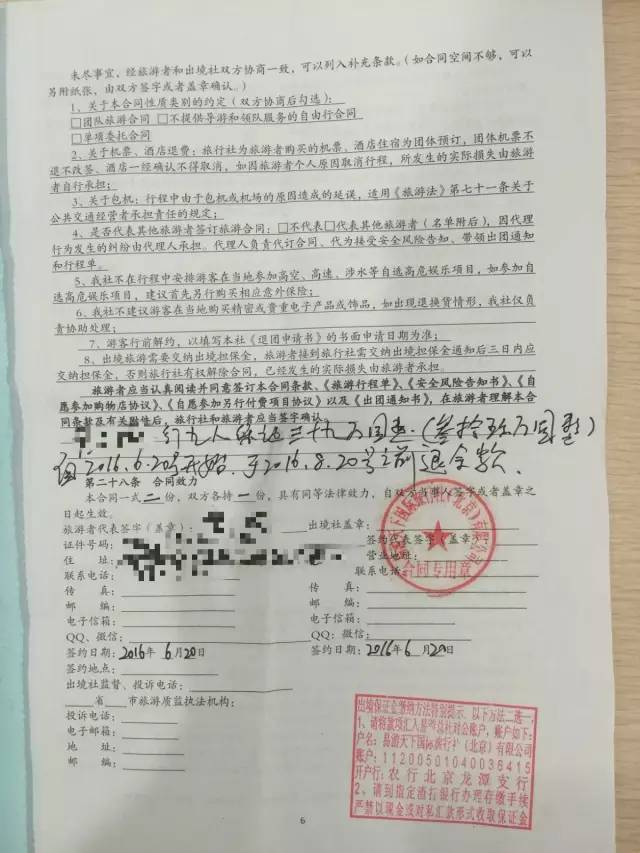 未尽事宜，经旅游者和出境社双方协商一致，可以列入补充条款。（如合同空间不够，可以
另附纸张，由双方签字或者盖章确认。）
1、关于本合同性质类别的约定（双方协商后勾选）：
□团队旅游合同 □不提供导游和领队服务的自由行合同
□单项委托合同
2、关于机票、酒店退费：旅行社为旅游者购买的机票、酒店住宿为团体预订，团体机票不
退不改签、酒店一经确认不得取消，如因旅游者个人原因取消行程，所发生的实际损失由旅游
者自行承担；
3、关于包机：行程中由于包机或机场的原因造成的延误，适用《旅游法》第七十一条关于
公共交通经营者承担责任的规定；
4、是否代表其他旅游者签订旅游合同：□不代表□代表其他旅游者（名单附后），因代理
行为发生的纠纷由代理人承担。代理人负责代订合同、代为接受安全风险告知、带领出团通知
和行程单。
5、我社不在行程中安排游客在当地参加高空、高速、涉水等自选高危娱乐项目，如参加自
选高危娱乐项目，建议首先另行购买相应意外保险；
6、我社不建议游客在当地购买精密或贵重电子产品或饰品，如出现退换货情形，我社仅负
责协助处理；
7、游客行前解约，以填写本社《退团申请书》的书面申请日期为准；
8、出境旅游需要交纳出境担保金，旅游者接到旅行社需交纳出境担保金通知后三日内应
交纳担保金，否则旅行社有权解除合同，已经发生的实际损失由旅游者承担。
旅游者应当认真阅读并同意签订本合同条款、《旅游行程单》、《安全风险告知书》、《自
愿参加购物店协议》、《自愿参加另行付费项目协议》以及《出团通知书》，在旅游者理解本合
同条款及有关附件后，旅行社和旅游者应当签字确认。
一行九人 万圆整（叁拾 万圆整）
2016.6.20号开始 于2016.8.20号之前退全款.
第二十八条 合同效力
本合同一式二份，双方各持一份，具有同等法律效力，自双方当事人签字或者盖章之
日起生效。
旅游者代表签字（盖章）： 出境社盖章：
证件号码： 签约代表签字（盖章）
住 址： 营业地址：
联系电话： 联系电话：
合同专用章
传 真： 传 真：
邮 编： 邮 编：
电子信箱： 电子信箱：
QQ、微信： QQ、微信：
签约日期：2016年6月20日 签约日期：2016年6月20
签约地点：
出境社监督、投诉电话：
省 市旅游质监执法机构：
投诉电话：
电子邮箱：
地 址：
邮 编：
出境保证金缴纳方法特别提示，以下方法二选一，
1、请将款项汇入 账户，账户如下：
户名：易游天下国际旅行社（北京）有限公司
账户：11200501040036415
开户行：农行北京龙潭支行
2、请到指定 行银行办理存缴手续
严禁以现金或对私汇款形式收取保证金
6